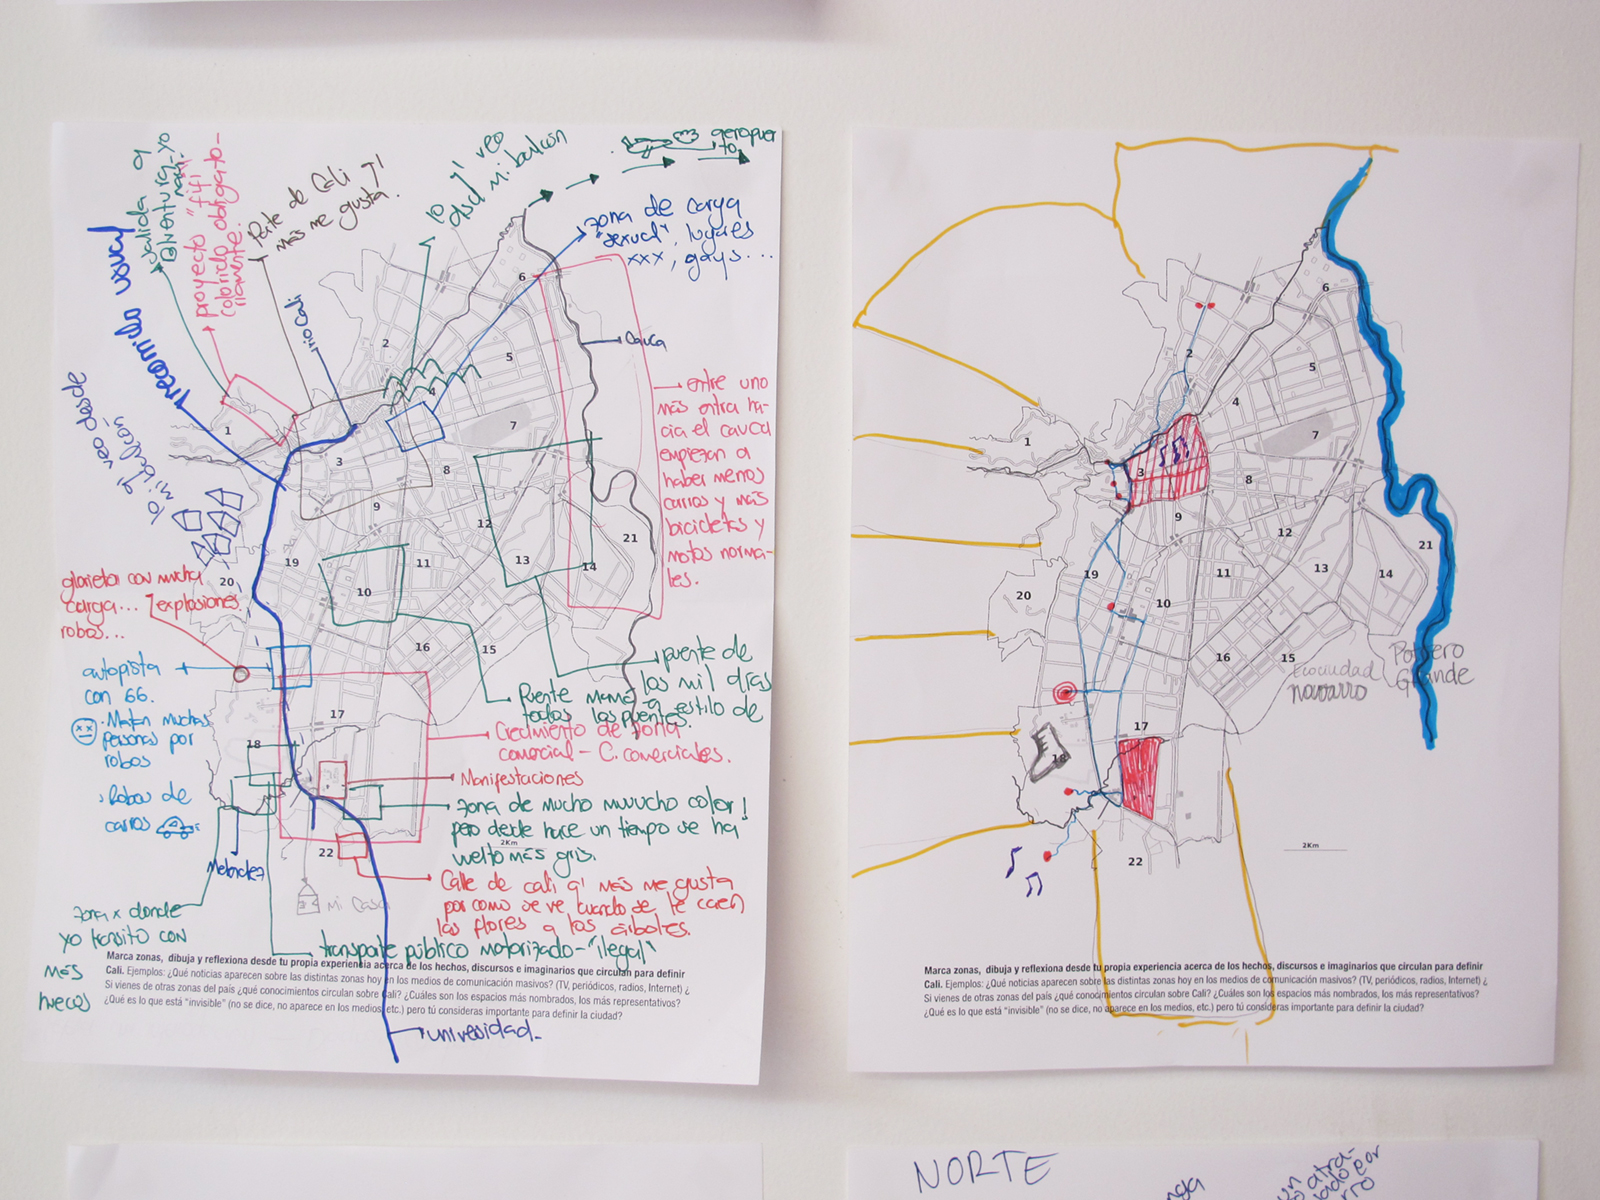 salida a
proyecto "fifi"
colorido obligato-
riamente.
Parte de Cali q'
más me gusta.
lo q' veo
desd mi balcón
aeropuer
to
zona de carga
"sexual", lugares
xxx, gays...
recorrido usual
rio Cali
Cauca
lo q'
veo desde
mi balcón
entre uno
más entra ha-
cia el cauca
empiezan a
haber menos
carros y más
bicicletas y
motos norma-
les.
glorieta con mucha
carga... explosiones.
robos...
autopista
con 66.
Matan muchas
personas por
robos
Robos de
carros
Melendez
zona x donde
yo transito con
más
huecos
puente de
los mil días
Puente mamá
todos los puentes.
a estilo de
Crecimiento de zona
comercial - C. comerciales.
Manifestaciones
zona de mucho muuucho color!
pero desde hace un tiempo se ha
vuelto más gris.
Calle de cali q' más me gusta
por como se ve cuando se le caen
las flores a los árboles.
mi casa
transporte público motorizado - "ilegal"
universidad
1
2
3
4
5
6
7
8
9
10
11
12
13
14
15
16
17
18
19
20
21
22
2Km
Marca zonas, dibuja y reflexiona desde tu propia experiencia acerca de los hechos, discursos e imaginarios que circulan para definir
Cali. Ejemplos: ¿Qué noticias aparecen sobre las distintas zonas hoy en los medios de comunicación masivos? (TV, periódicos, radios, Internet) ¿
Si vienes de otras zonas del país ¿qué conocimientos circulan sobre Cali? ¿Cuáles son los espacios más nombrados, los más representativos?
¿Qué es lo que está "invisible" (no se dice, no aparece en los medios, etc.) pero tú consideras importante para definir la ciudad?
1
2
3
4
5
6
7
8
9
10
11
12
13
14
15
16
17
18
19
20
21
22
Ecociudad
navarro
Potrero
Grande
2Km
Marca zonas, dibuja y reflexiona desde tu propia experiencia acerca de los hechos, discursos e imaginarios que circulan para definir
Cali. Ejemplos: ¿Qué noticias aparecen sobre las distintas zonas hoy en los medios de comunicación masivos? (TV, periódicos, radios, Internet) ¿
Si vienes de otras zonas del país ¿qué conocimientos circulan sobre Cali? ¿Cuáles son los espacios más nombrados, los más representativos?
¿Qué es lo que está "invisible" (no se dice, no aparece en los medios, etc.) pero tú consideras importante para definir la ciudad?
NORTE